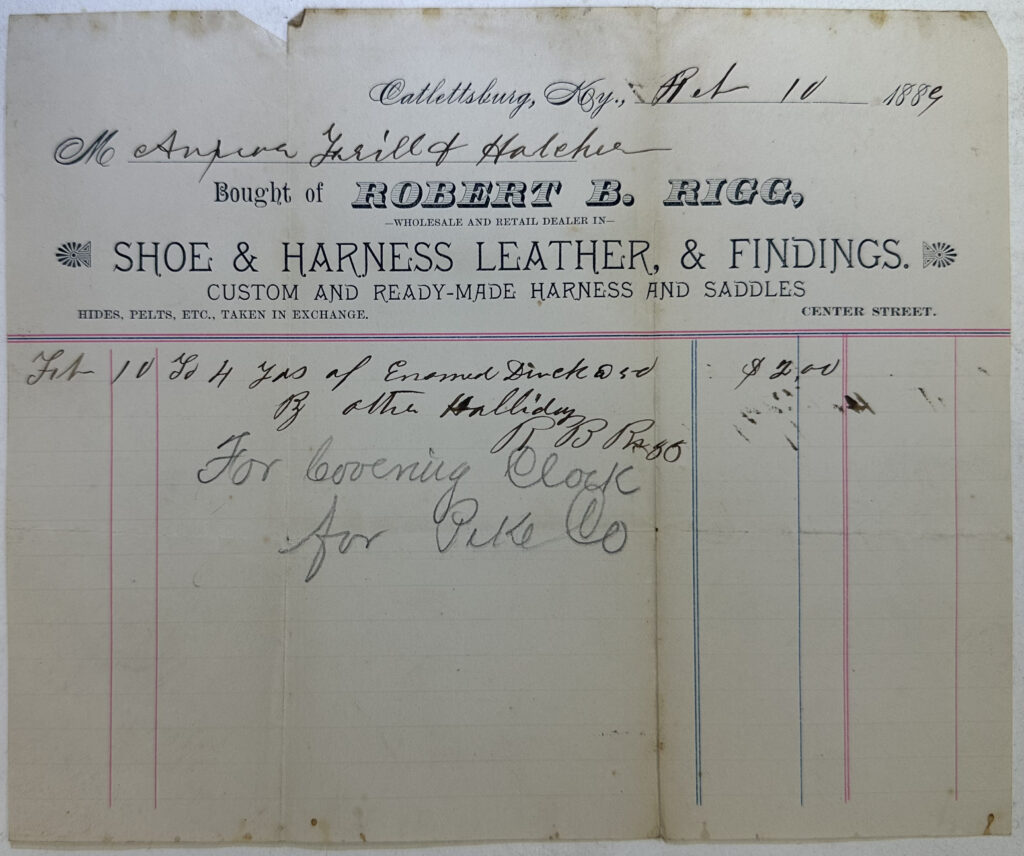 Catlettsburg, Ky., Feb 10 1889
M & Hatcher
Bought of ROBERT B. RIGG,
—WHOLESALE AND RETAIL DEALER IN—
SHOE & HARNESS LEATHER, & FINDINGS.
CUSTOM AND READY-MADE HARNESS AND SADDLES
HIDES, PELTS, ETC., TAKEN IN EXCHANGE.
CENTER STREET.
Feb 10 To 4 yds of Duck @ 50 $2.00
By Halliday
R B Rigg
For Covering Clock
for Pike Co